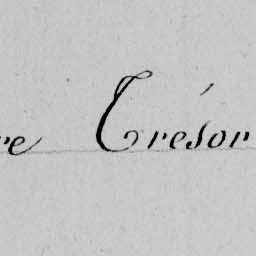 re Trésor